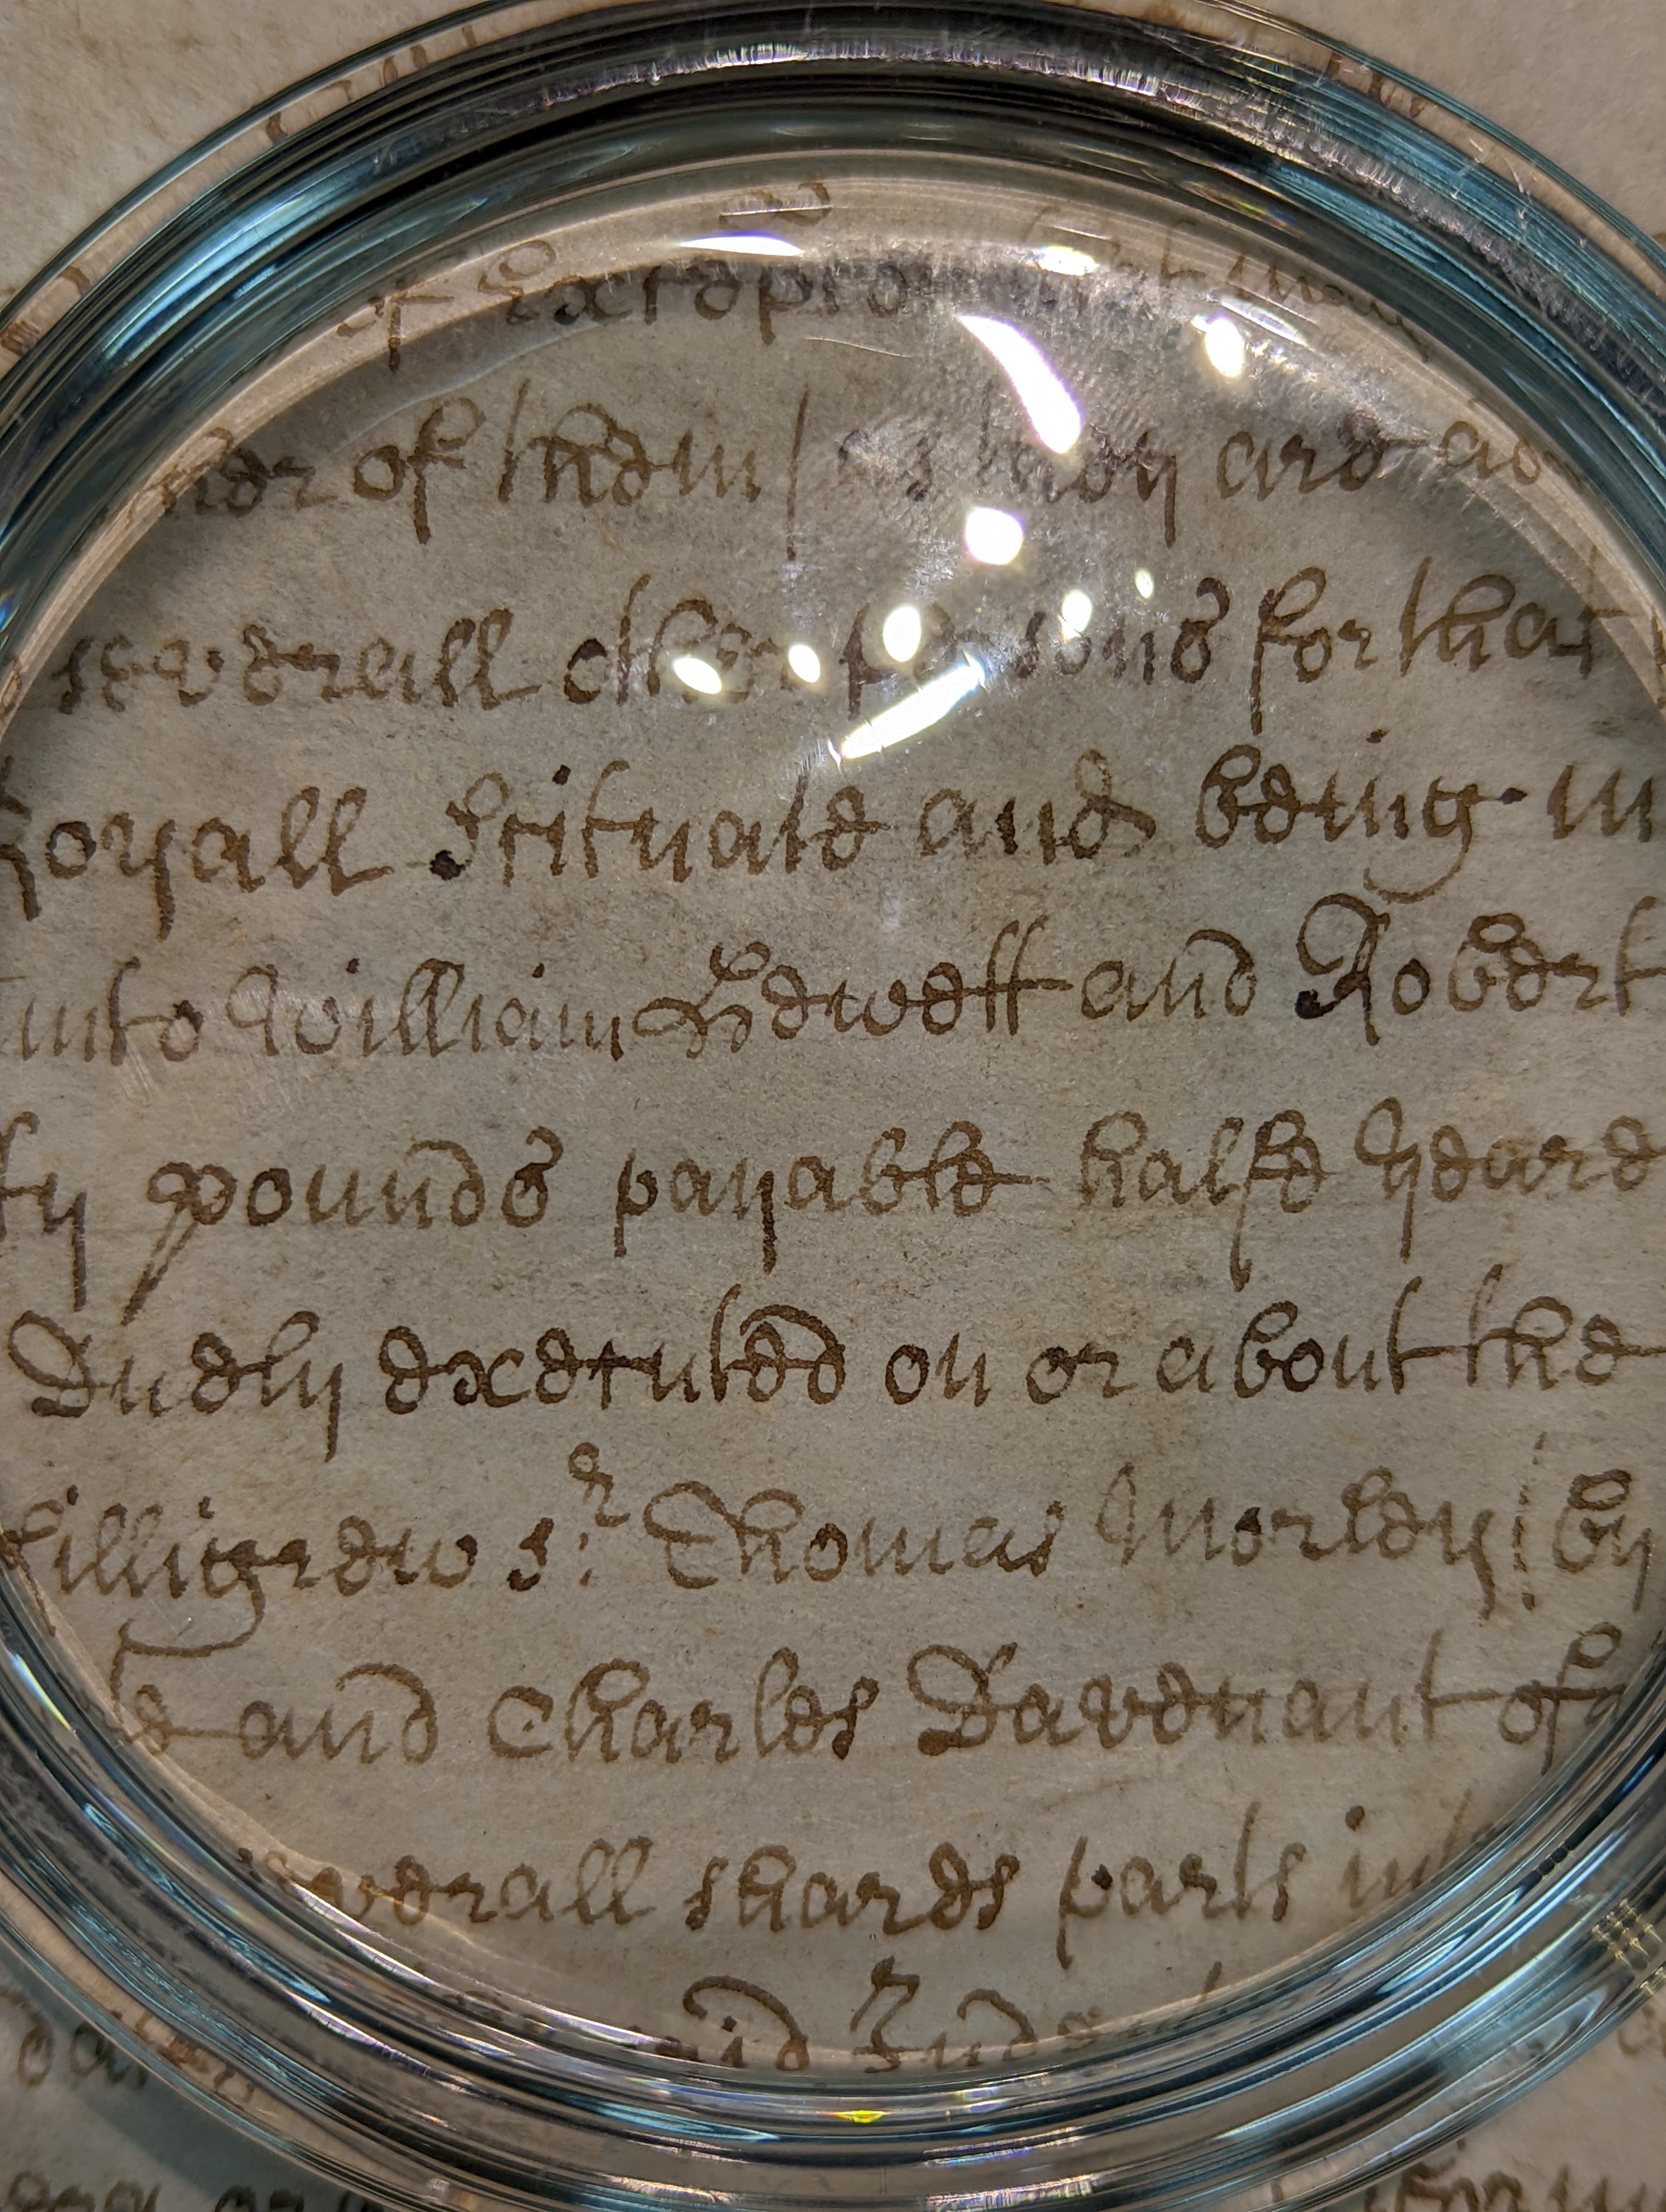 of Exce
of them / as they are
severall other persons for that
Royall Scituate and being in
unto William Hewett and Robert
pounds payable halfe yeare
Dudly executed on or about the
Killigrew Sr Thomas Morley / by
and Charles Davenant of
severall shares parts
said Inde